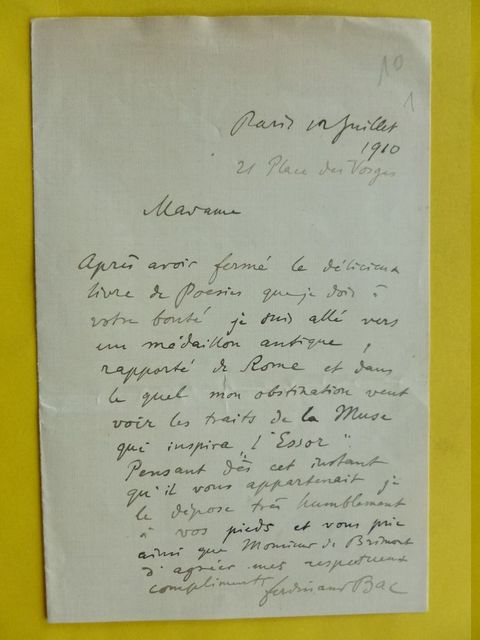 10
1
Paris 1er Juillet
1910
21 Place des Vosges
Madame
Après avoir fermé le délicieux
livre de Poésies que je dois à
votre bonté je suis allé vers
un médaillon antique,
rapporté de Rome et dans
le quel mon obstination veut
voir les traits de la Muse
qui inspira „l'Essor".
Pensant dès cet instant
qu'il vous appartenait je
le dépose très humblement
à vos pieds et vous prie
ainsi que Monsieur de Brimont
d'agréer mes respectueux
compliments Ferdinand Bac